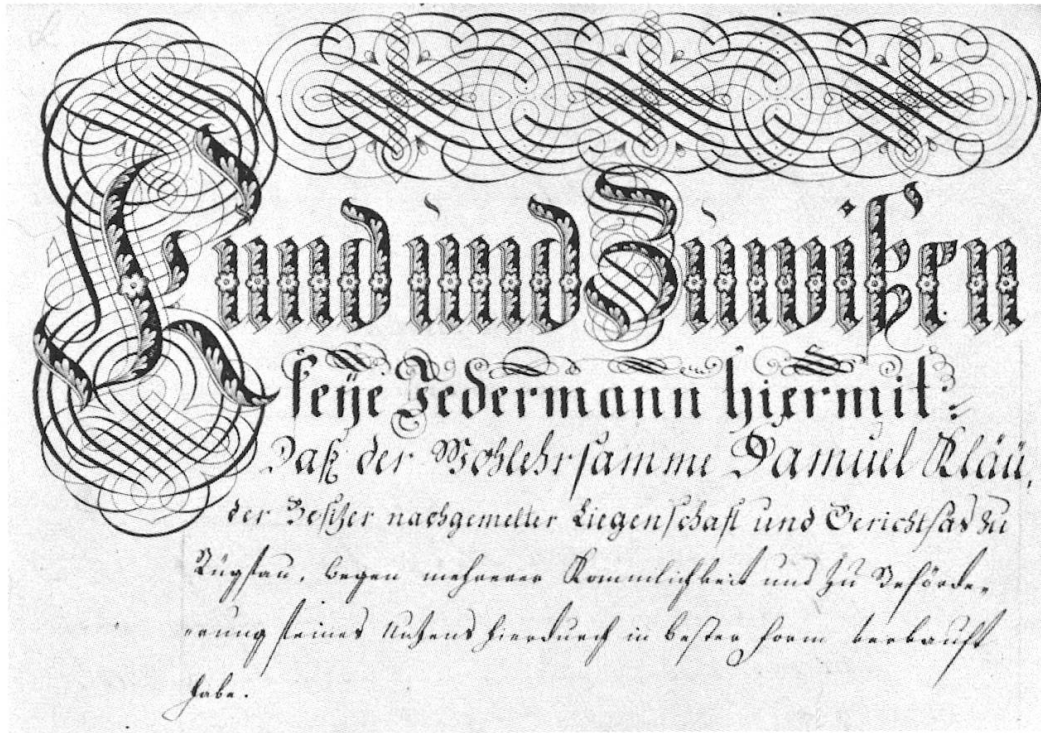 Kund und Zuwißen
seye Jedermann hiermit:
Daß der Wohlehrsamme Samuel Kläü,
der Besitzer nachgemelter Liegenschaft und Gerichtsäs zu
wegen mehrerer Kommlichkeit und zu Beförde-
-rung seines Nutzens hierdurch in bester Form verkauft
habe.